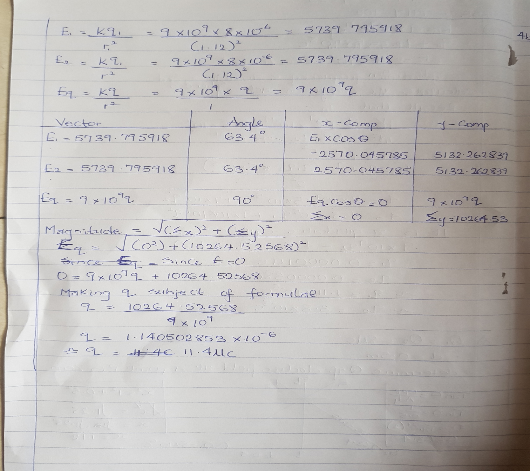 E₁ = kq₁/r² = 9×10⁹×8×10⁻⁶/(1.12)² = 5739.795918
E₂ = kq₁/r² = 9×10⁹×8×10⁻⁶/(1.12)² = 5739.795918
Eq = kq/r² = 9×10⁹×q/1 = 9×10⁹q
Vector Angle x-comp y-comp
E₁ - 5739.795918 63.4° E₁×cosθ
-2570.045785 5132.262839
E₂ - 5739.795918 63.4° 2570.045785 5132.262839
Eq = 9×10⁹q 90° Eq.cos0=0 9×10⁹q
Σx = 0 Σy=1026453
Magnitude = √(Σx)²+(Σy)²
Eq = √(0²)+(10264.52568)²
Since Eq = since E=0
0=9×10⁹q + 10264.52568
Making q subject of formulae
q = 10264.52568/9×10⁹
q = 1.140502853×10⁻⁶
q = 11.4μC